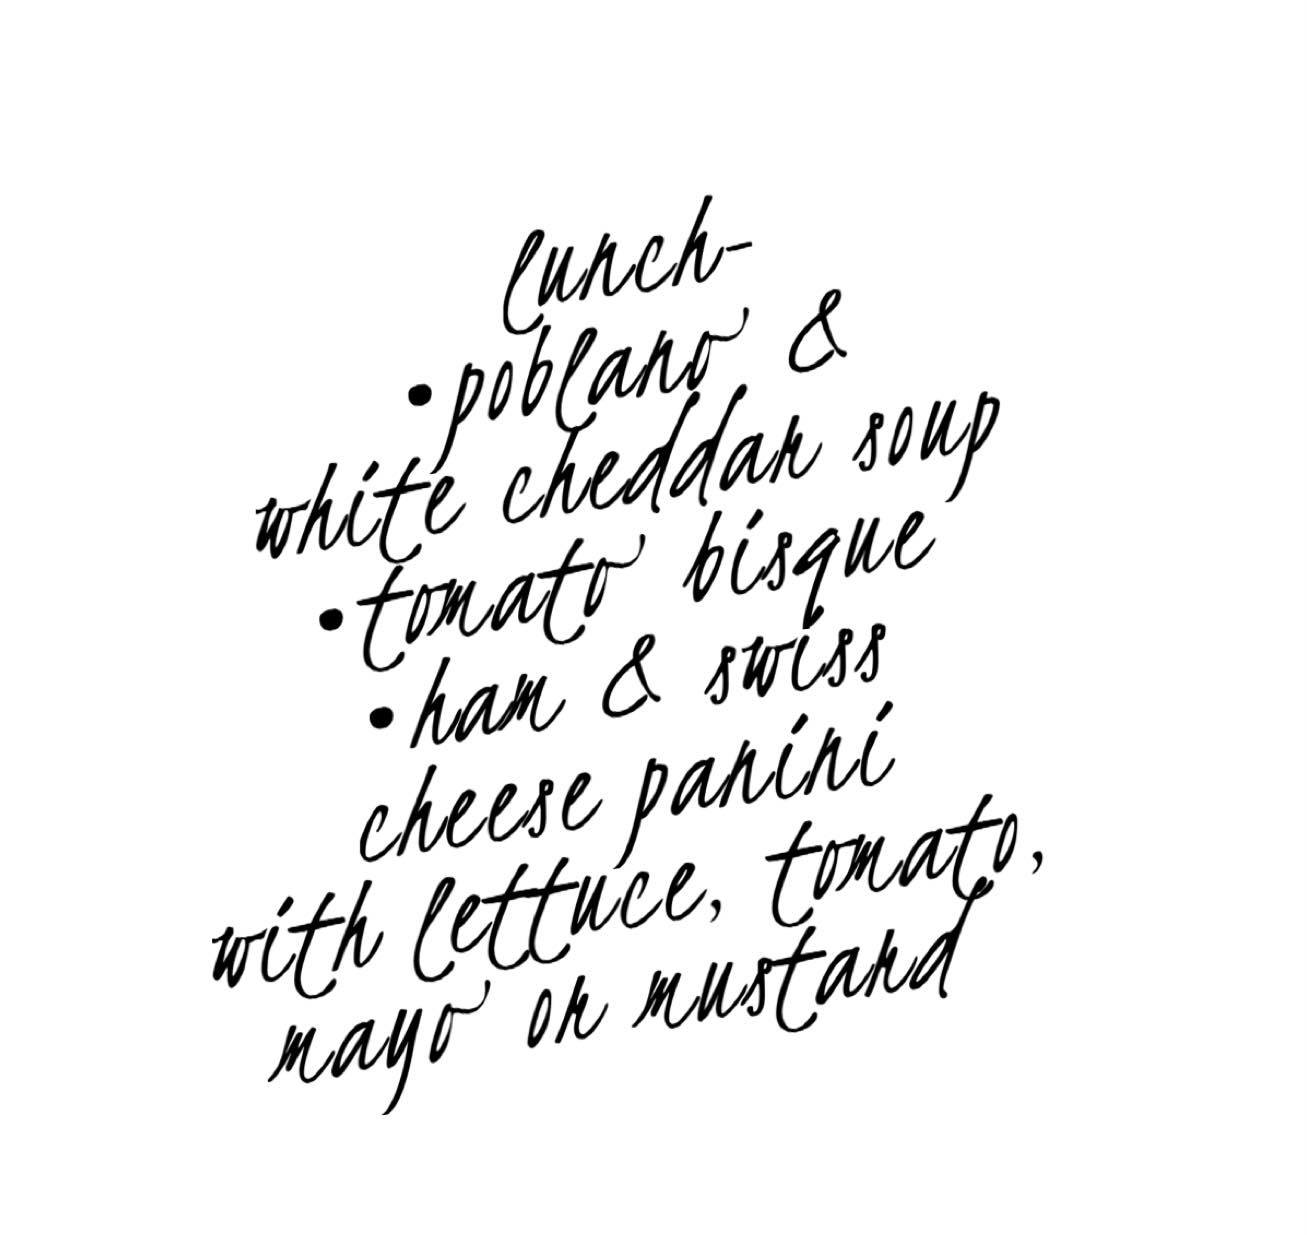 lunch-
•poblano &
white cheddar soup
•tomato bisque
•ham & swiss
cheese panini
with lettuce, tomato,
mayo or mustard